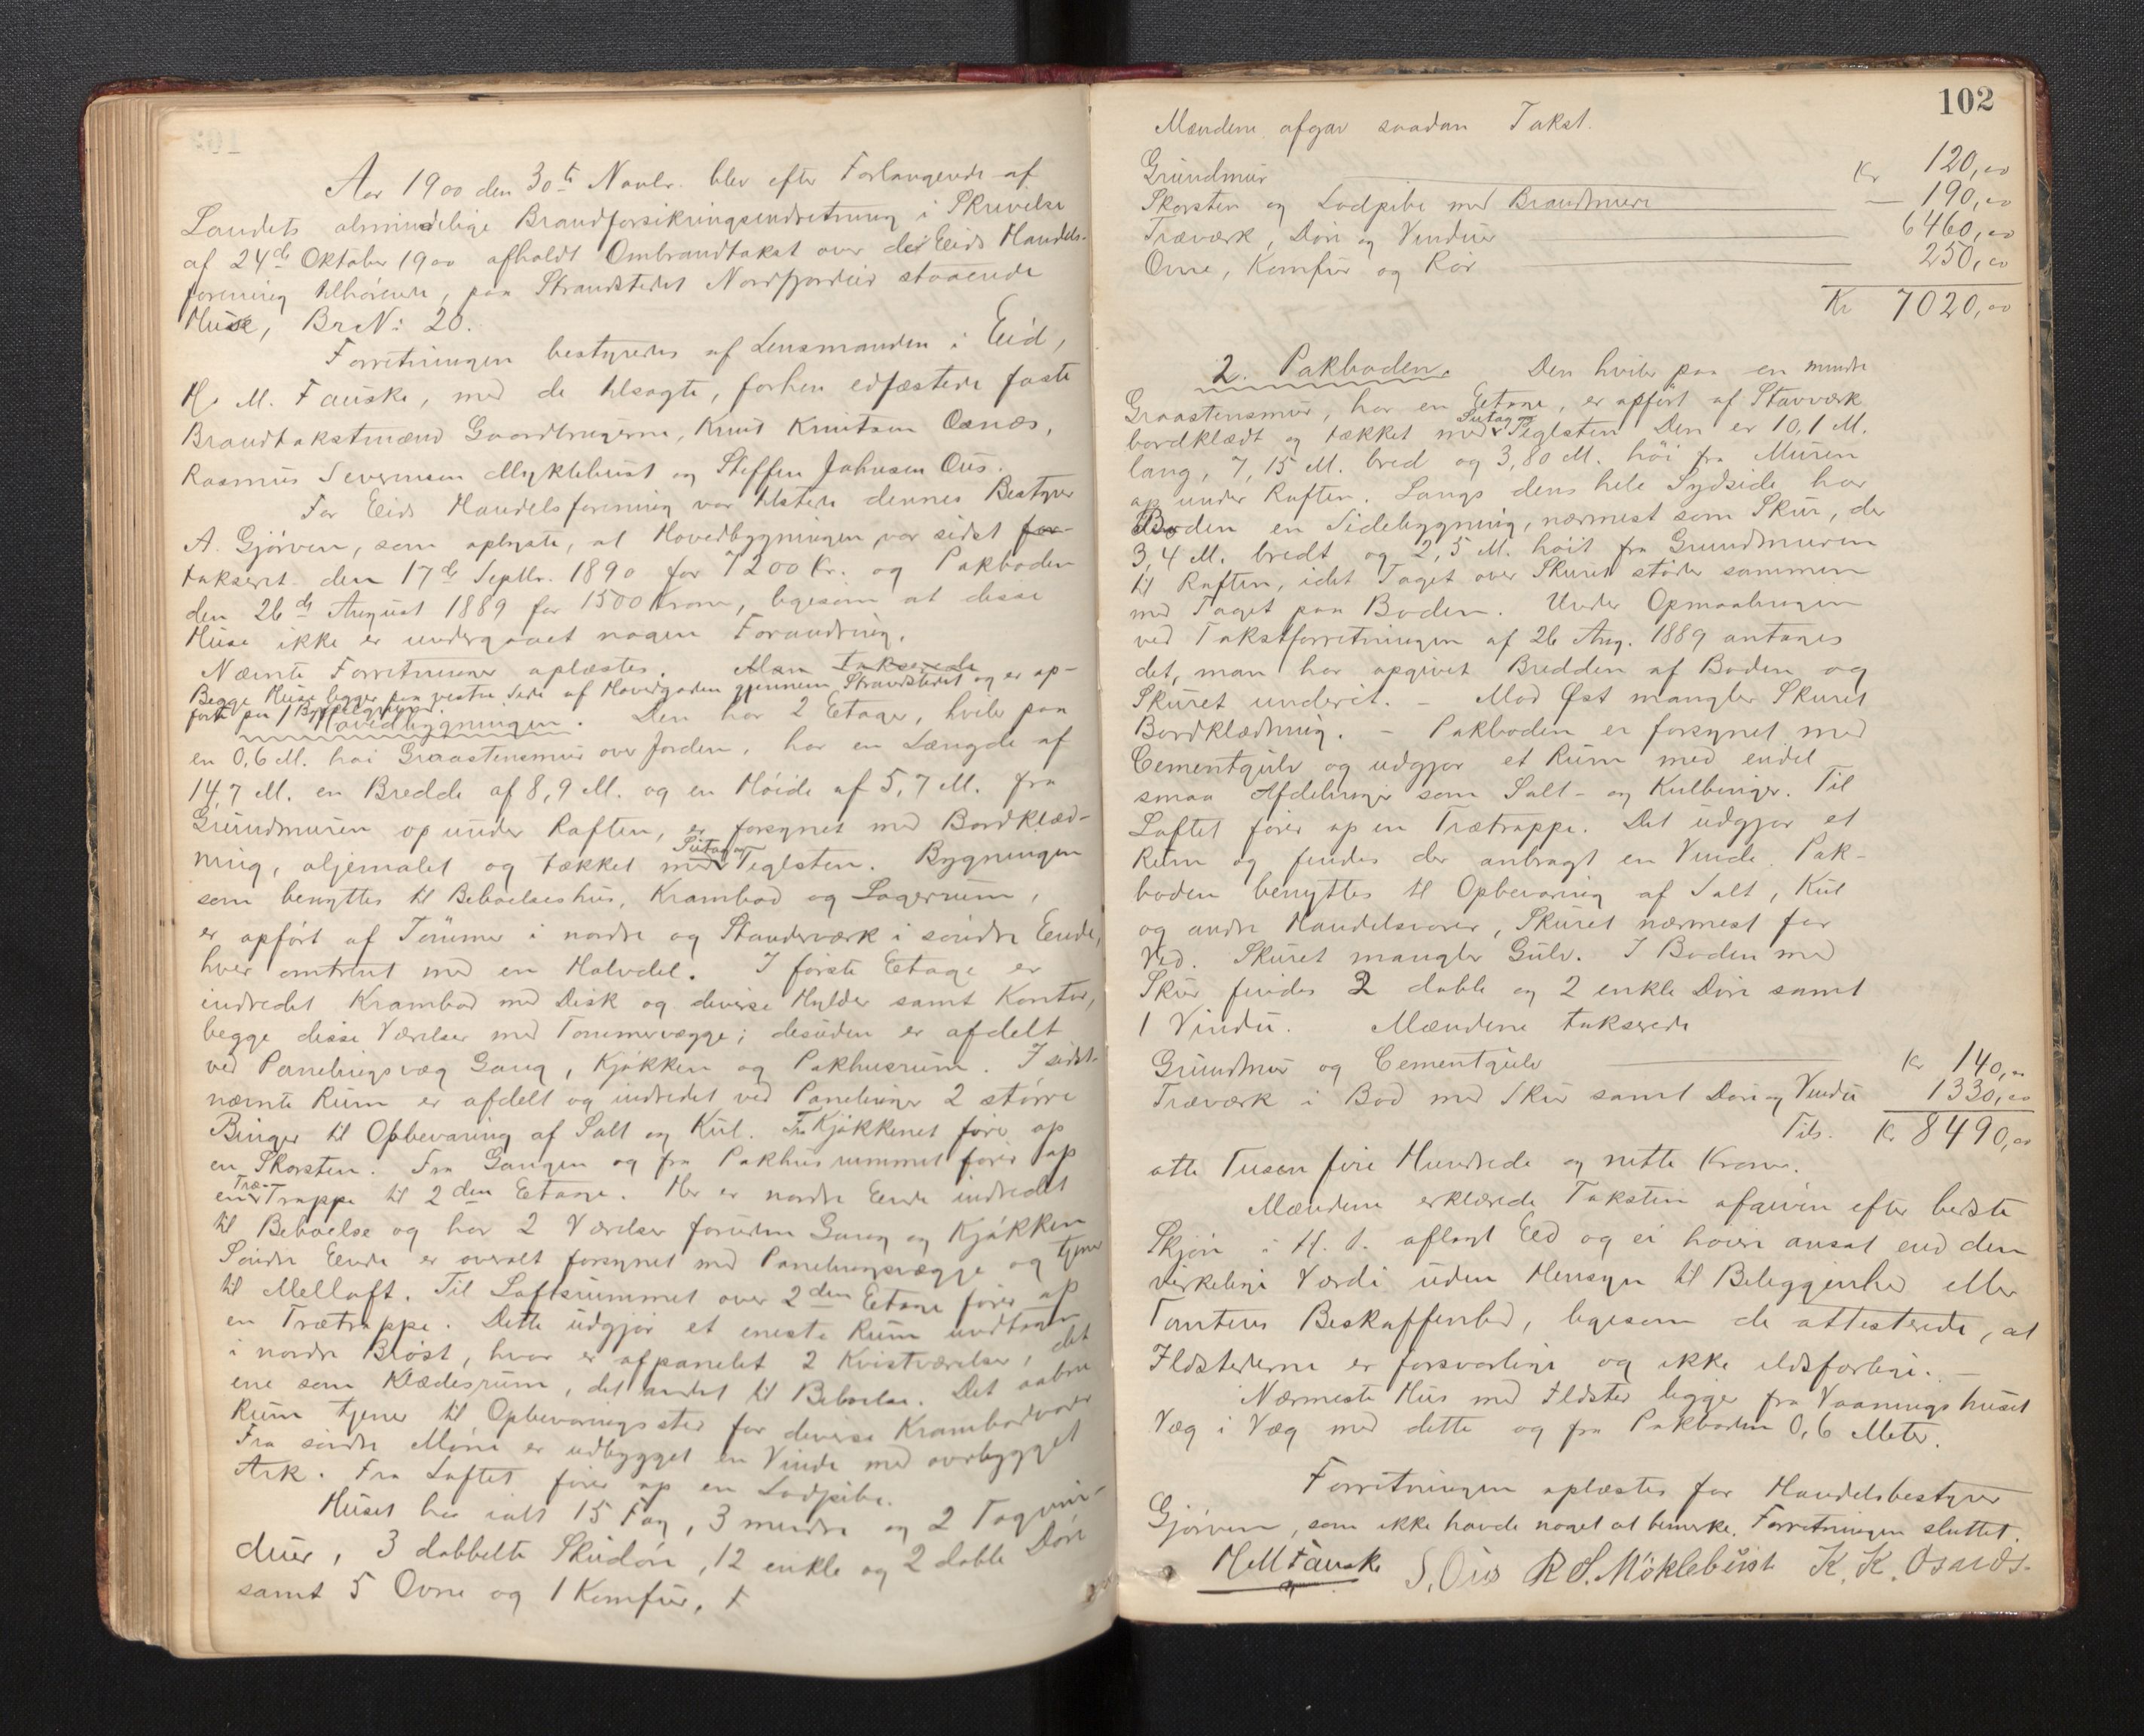 Aar 1900 den 30te Novbr. blev efter Forlangende af
Landets almindelige Brandforsikringsindretning i Skrivelse
af 24de Oktober 1900 afholdt Ombrandtakst over de Eids Handels-
forening tilhörende, paa Strandstedet Nordfjordeid staaende
Huse, BrN: 20.
Forretningen bestyredes af Lensmanden i Eid,
H. M. Fauske, med de tilsagte, forhen edfæstede faste
Brandtakstmænd Gaardbrugerne, Knut Knutsen Osnæs,
Rasmus Severinsen Myklebust og Steffen Johnsen Ous.
For Eids Handelsforening var tilstede dennes Bestyrer
A. Gjörven, som oplyste, at Hovedbygningen var sidst for-
takseret den 17de Septbr. 1890 for 7200 Kr. og Pakboden
den 26de August 1889 for 1500 Kroner, ligesom at disse
Huse ikke er undergaaet nogen Forandring.
Nævnte Forretninger oplæstes. Man takserede
Begge Huse ligger paa vestre Side af Hovedgaden gjennem Strandstedet og er op-
ført paa 1 Byggegrund.
Hovedbygningen. Den har 2 Etager, hviler paa
en 0,6 M. høi Graastensmur over Jorden, har en Længde af
14,7 M. en Bredde af 8,9 M. og en Höide af 5,7 M. fra
Grundmuren op under Raften, er forsynet med Bordklæd-
ning, oljemalet og tækket med Sutag og Teglsten. Bygningen
som benyttes til Beboelseshus, Krambod og Lagerrum,
er opfört af Tömmer i nordre og Standerværk i söndre Eende,
hver omtrent med en Halvdel. I förste Etage er
indredet Krambod med Disk og diverse Hylder samt Kontor,
begge disse Værelser med Tømmervægge; desuden er afdelt
ved Panelingsvæg Gang, Kjökken og Pakhusrum. I sidst-
nævnte Rum er afdelt og indredet ved Panelinger 2 större
Binger til Opbevaring af Salt og Kul. Fra Kjökkenet förer op
en Skorsten. Fra Gangen og fra Pakhusrummet förer op
en Træ-Trappe til 2den Etage. Her er nordre Eende indredet
til Beboelse og har 2 Værelser foruden Gang og Kjökken
Söndre Eende er overalt forsynet med Panelingsvægge og tjener
til Melloft. Til Loftsrummet over 2den Etage förer op
en Trætrappe. Dette udgjör et eneste Rum undtagen
i nordre Bröst, hvor er afpanelet 2 Kvistværelser, det
ene som Klædesrum, det andet til Beboelse. Det aabne
Rum tjener til Opbevaringssted for diverse Krambodvarer
Fra söndre Möne er udbygget en Vinde med overbygget
Ark. Fra Loftet förer op en Lodpibe.
Huset har ialt 15 Fag, 3 mindre og 2 Tagvin-
duer, 3 dobbelte Skuddöre, 12 enkle og 2 doble Döre
samt 5 Ovne og 1 Komfur. +
102
Mændene afgav saadan Takst.
Grundmur Kr 120,00
Skorsten og Lodpibe med Brandmure — 190,00
Træværk, Döre og Vinduer 6460,00
Ovne, Komfur og Rör 250,00
Kr 7020,00
2. Pakboden. Den hviler paa en mindre
Graastensmur, har en Etage, er opfört af Stavværk
bordklædt og tækket med Sutag og Teglsten Den er 10,1 M.
lang, 7,15 M. bred og 3,80 M. höi fra Muren
op under Raften. Langs dens hele Sydside har
Boden en Sidebygning, nærmest som Skur, der
3,4 M. bredt og 2,5 M. höit fra Grundmuren
til Raften, idet Taget over Skuret stöder sammen
med Taget paa Boden. Under Opmaalingen
ved Takstforretningen af 26 Aug. 1889 antages
det, man har opgivet Bredden af Boden og
Skuret underet. – Mod Øst mangler Skuret
Bordklædning. – Pakboden er forsynet med
Cementgulv og udgjör et Rum med endel
smaa Afdelinger som Salt- og Kulbinger. Til
Loftet förer op en Trætrappe. Det udgjör et
Rum og findes der anbragt en Vinde. Pak-
boden benyttes til Opbevaring af Salt, Kul
og andre Handelsvarer, Skuret nærmest for
Ved. Skuret mangler Gulv. I Boden med
Skur findes 2 doble og 2 enkle Döre samt
1 Vindu. Mændene takserede
Grundmur og Cementgulv Kr 140,00
Træværk i Bod med Skur samt Döre og Vindu 1330,00
Tils. Kr 8490,00
otte Tusen fire Hundrede og nitti Kroner.
Mændene erklærede Taksten afgiven efter bedste
Skjön i H. t. aflagt Eed og ei höiere ansat end den
virkelige Værdi uden Hensyn til Beliggenhed eller
Tomtens Beskaffenhed, ligesom de attesterede, at
Ildstederne er forsvarlige og ikke ildsfarlige. –
Nærmeste Hus med Ildsted ligger fra Vaaningshuset
Væg i Væg med dette og fra Pakboden 0,6 Meter.
Forretningen oplæstes for Handelsbestyrer
Gjörven, som ikke havde noget at bemerke. Forretningen sluttet.
HMFauske S. Ous R S. Mökleburst K. K. Osnæs.